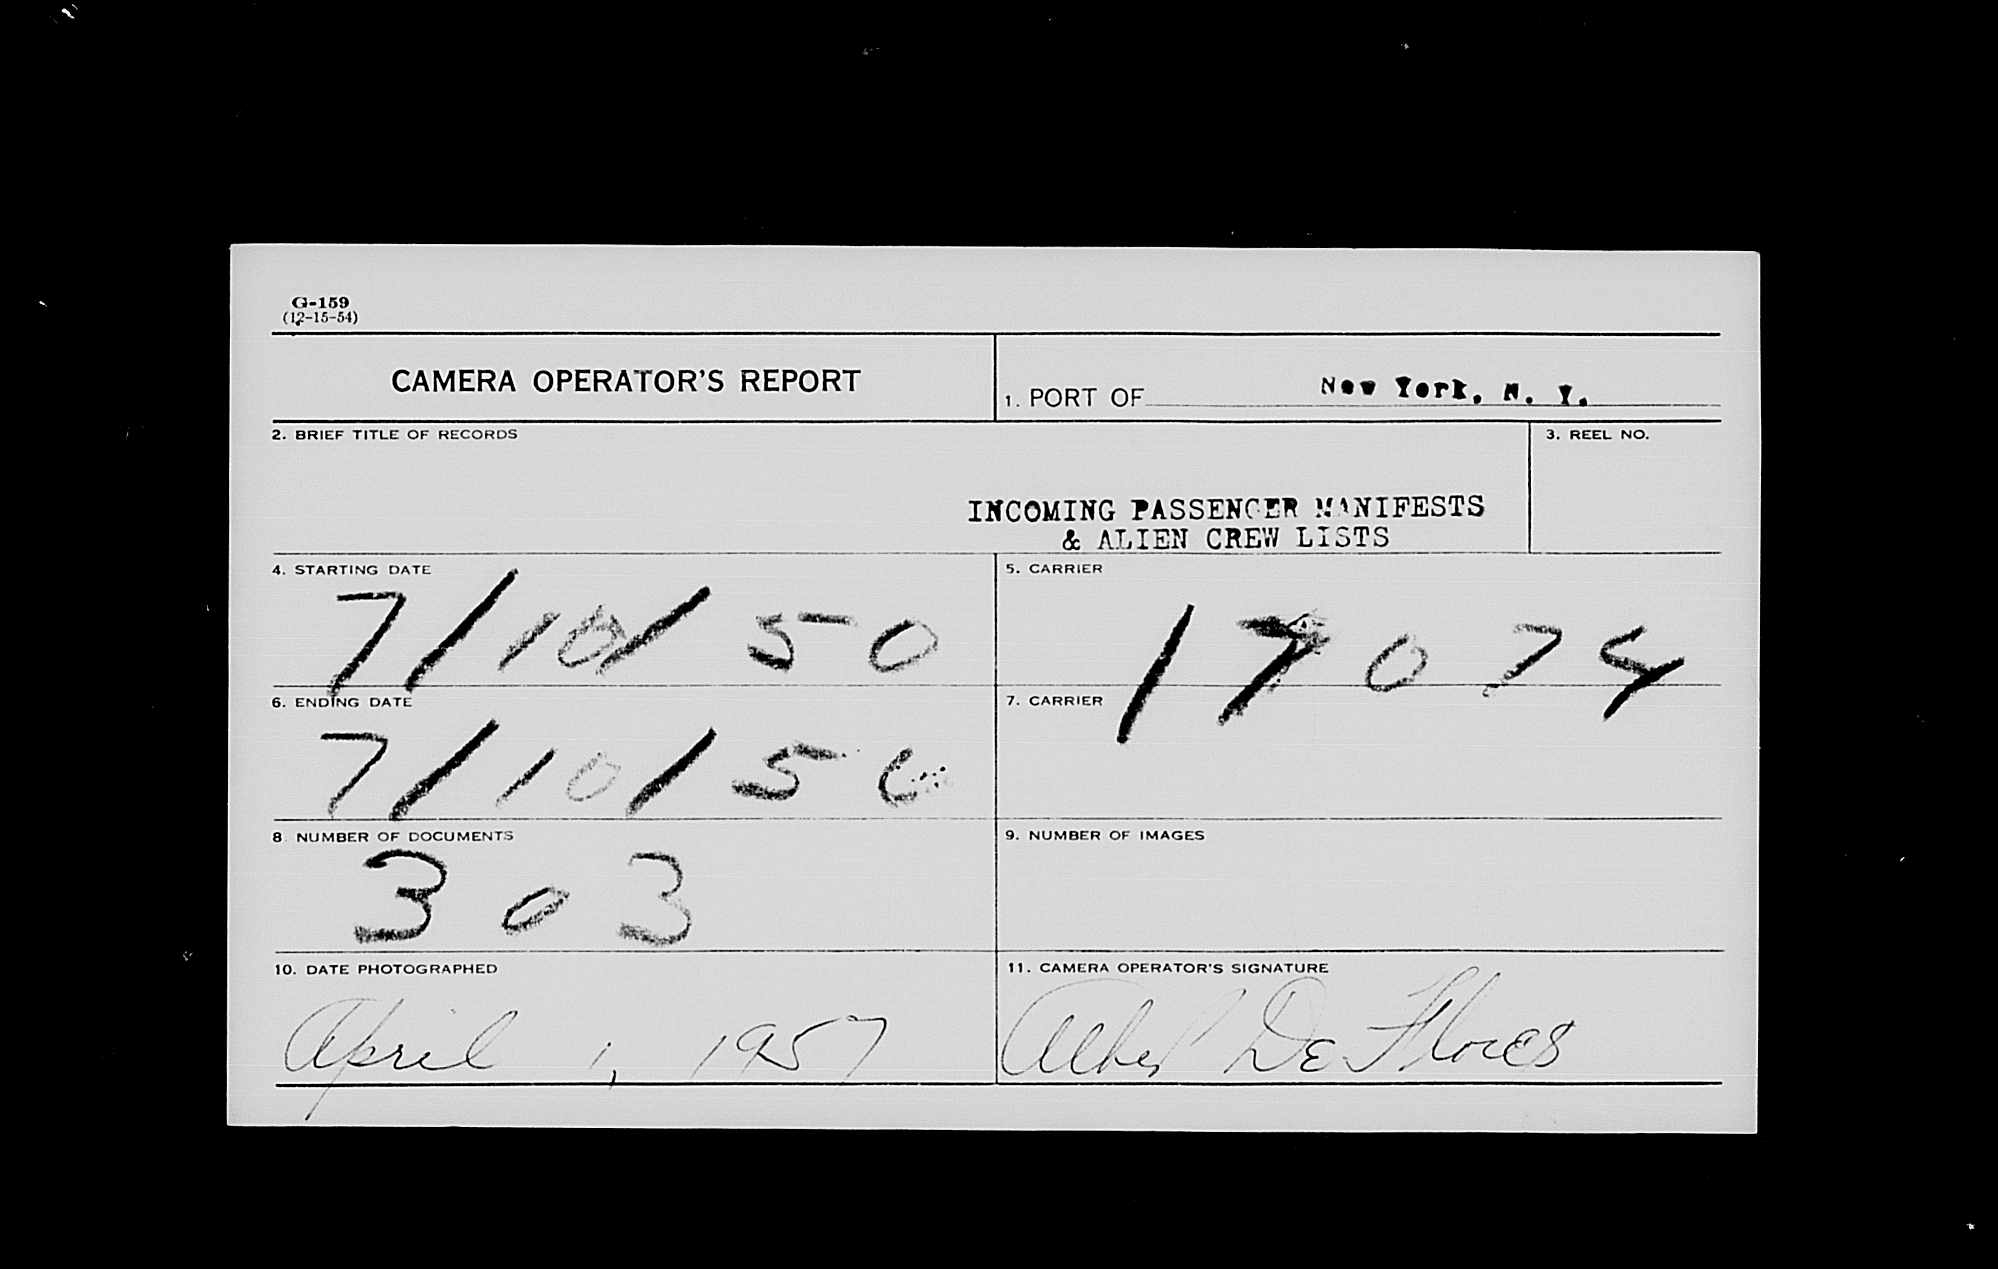 G-159
(12-15-54)
CAMERA OPERATOR'S REPORT
1. PORT OF New York, N. Y.
2. BRIEF TITLE OF RECORDS
3. REEL NO.
INCOMING PASSENGER MANIFESTS
& ALIEN CREW LISTS
4. STARTING DATE
7/10/50
5. CARRIER
17074
6. ENDING DATE
7/10/50
7. CARRIER
8. NUMBER OF DOCUMENTS
303
9. NUMBER OF IMAGES
10. DATE PHOTOGRAPHED
April 1, 1957
11. CAMERA OPERATOR'S SIGNATURE
De Flores